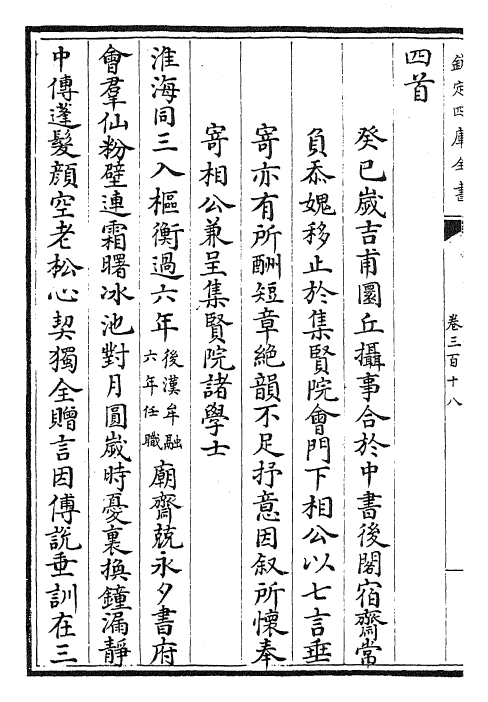 欽定四庫全書
卷三百十八
四首
癸巳歲吉甫圜丘攝事合於中書後閣宿齋常
負忝媿移止於集賢院會門下相公以七言垂
寄亦有所酬短章絶韻不足抒意因叙所懷奉
寄相公兼呈集賢院諸學士
淮海同三入樞衡過六年後漢牟融六年任職廟齋兢永夕書府
會羣仙粉壁連霜曙氷池對月圓嵗時憂裏換鐘漏靜
中傳蓬髮顔空老松心契獨全贈言因傅說垂訓在三